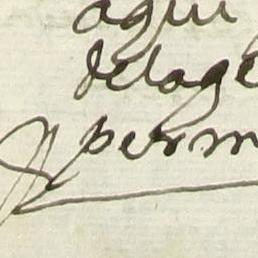 aqui
delage
perm